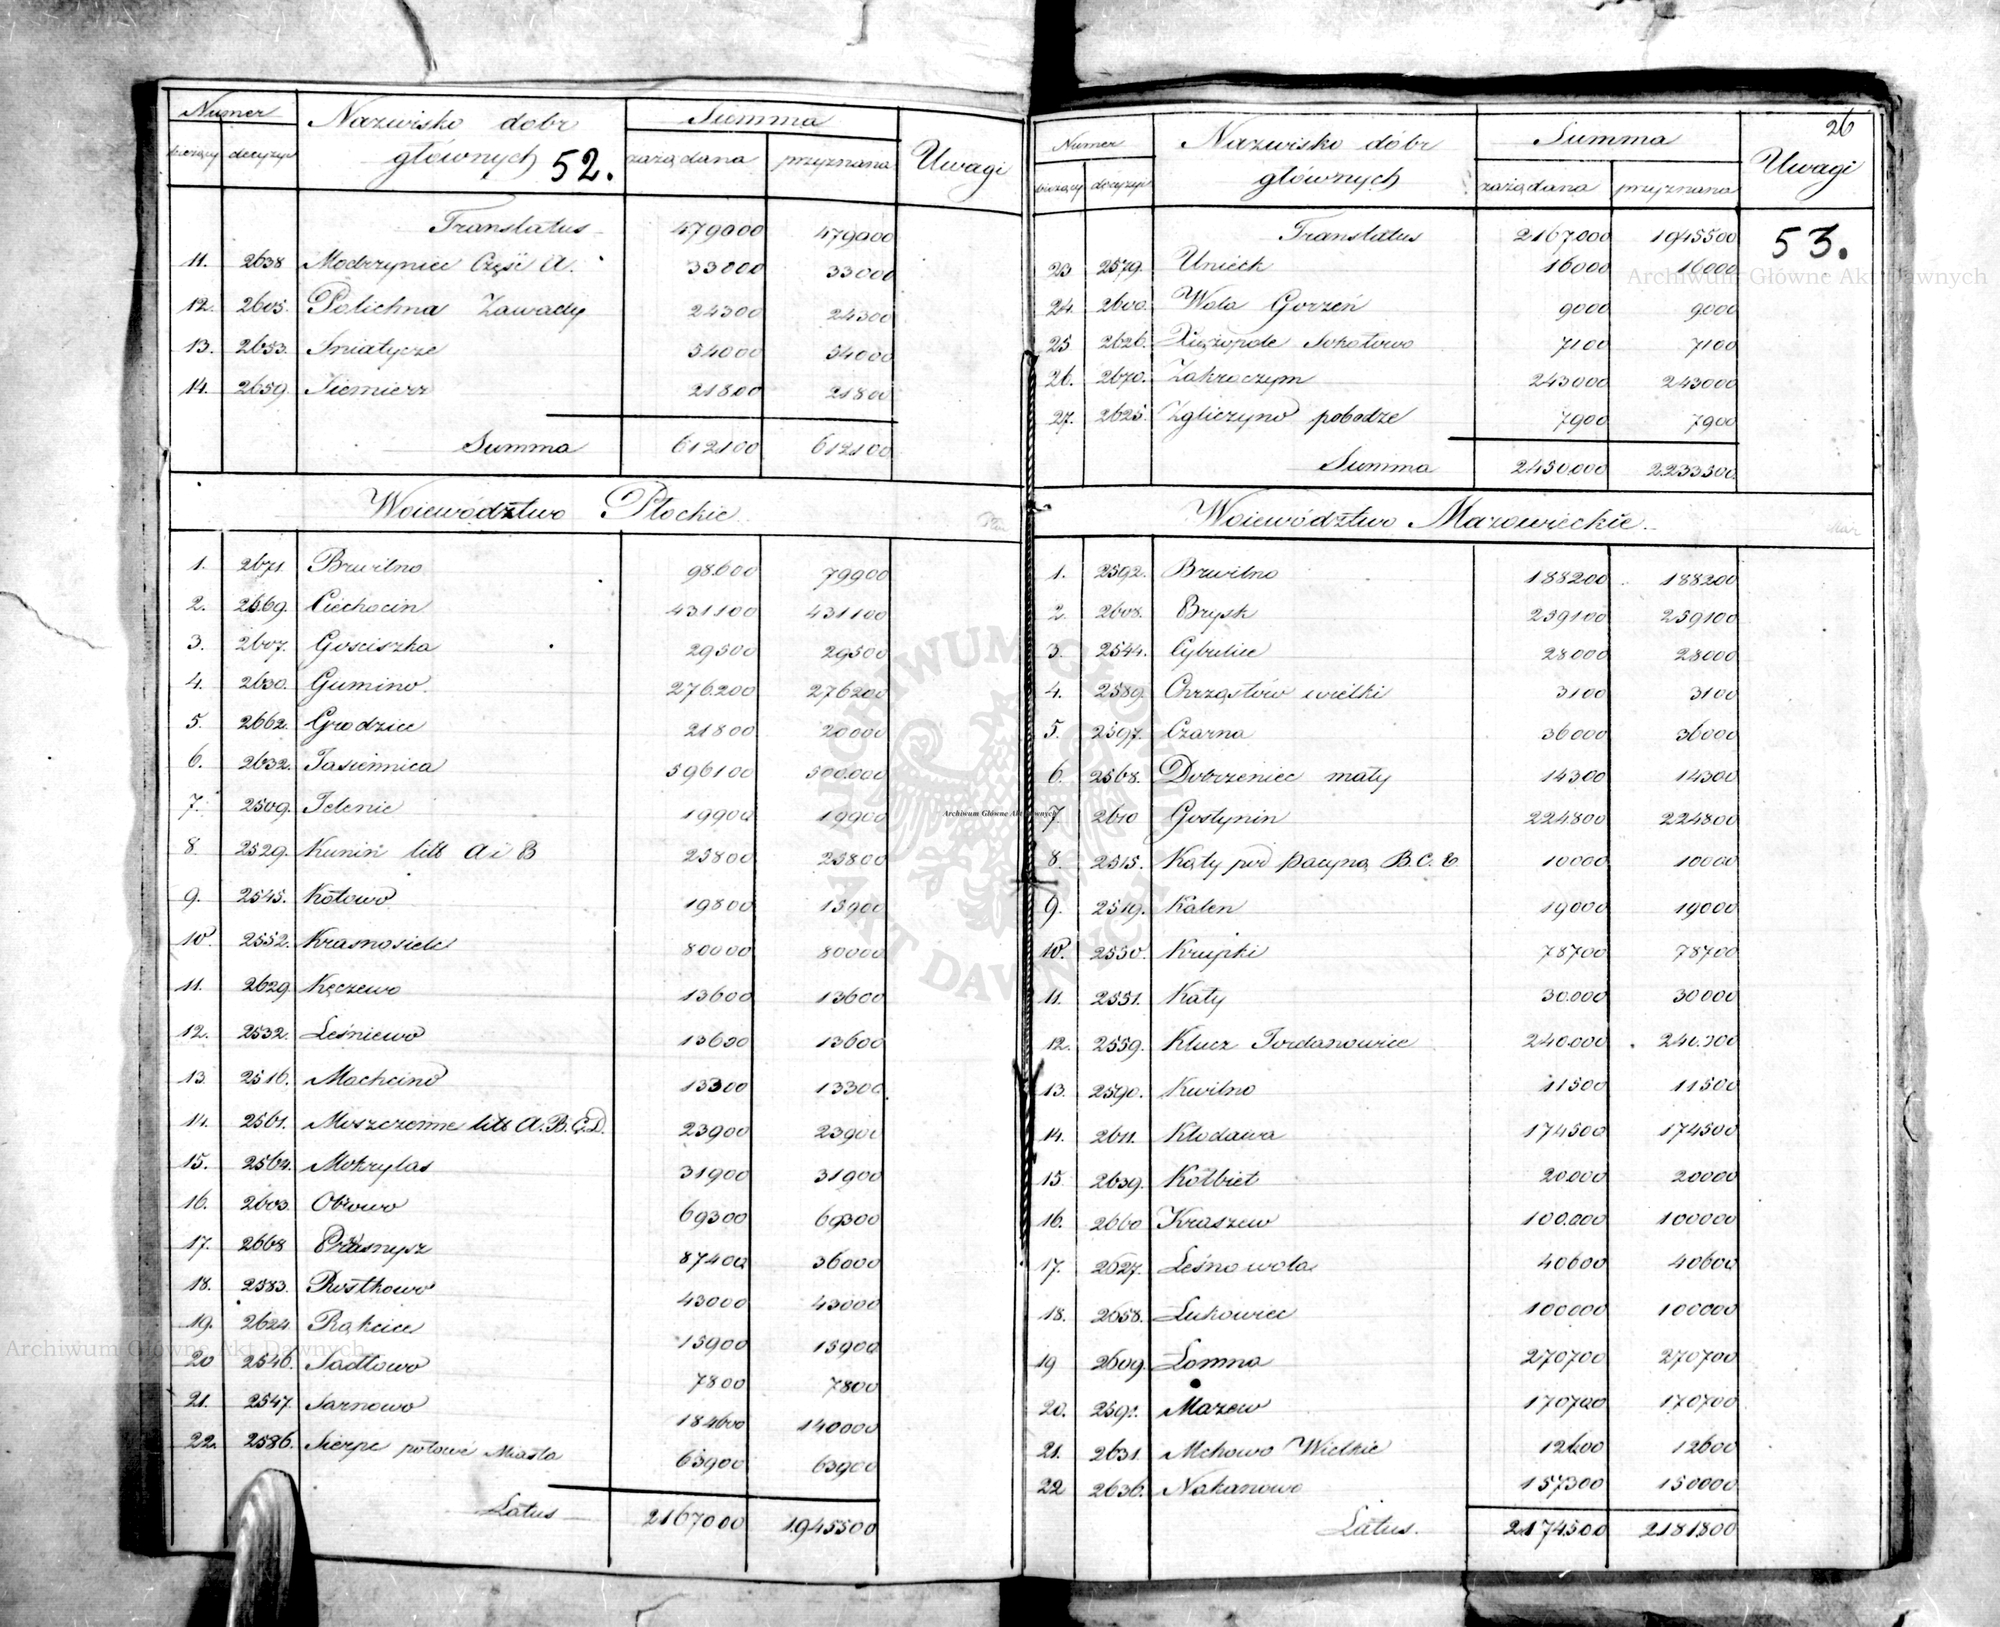 Numer Nazwisko dobr głównych Summa Uwagi
bieżący decyzyi 52. zażądana przyznana
Translatus 479000 479000
11. 2638 Modrzynice Część A. 33000 33000
12. 2605. Polichna Zawady 24300 24300
13. 2653. Sniatycze 54000 54000
14. 2659. Siemierz 21800 21800
Summa 612100 612100
Woiewództwo Płockie
1. 2671. Brwilno 98600 79900
2. 2569. Ciechocin 431100 431100
3. 2607. Gosciszka 29500 29500
4. 2630. Gumino 276200 276200
5. 2662. Grodziec 21800 20000
6. 2632. Jasiennica 596100 500.000
7. 2509. Jelenie 19900 19900
8. 2529. Kunin litt A i B 25800 25800
9. 2545. Kołowo 19800 15900
10. 2552. Krasnosielc 80000 80000
11. 2629 Kęczewo 13600 13600
12. 2532. Leśniewo 13600 13600
13. 2516. Machcino 13300 13300
14. 2561. Moszczenne litt A. B. C. D. 23900 23900
15. 2564. Mokrylas 31900 31900
16. 2603. Obrowo 69300 69300
17. 2668 Przasnysz 87400 36000
18. 2583. Rostkowo 43000 43000
19. 2624 Rąkcice 15900 15900
20 2546. Sadłowo 7800 7800
21. 2547. Sarnowo 184600 140000
22. 2586. Sierpc połowe Miasta 63900 63900
Latus 2167000 1945500
26
Numer Nazwisko dóbr głównych Summa Uwagi
bieżący decyzyi zażądana przyznana
Translatus 2167.000 1945500 53.
23 2579. Unieck 16000 16000
24. 2600. Wola Gorzeń 9000 9000
25 2626. Xiężopole Sokołowo 7100 7100
26. 2670. Zakroczym 243000 243000
27. 2625. Zgliczyno pobodze 7900 7900
Summa 2450.000 2233500
Woiewództwo Mazowieckie
1. 2592. Brwilno 188200 188200
2. 2608. Brysk 259100 259100
3. 2544. Cybulice 28000 28000
4. 2589. Chrząstów wielki 3100 3100
5. 2597. Czarna 36000 36000
6. 2568. Dobrzeniec mały 14300 14300
7. 2610 Gostynin 224800 224800
8. 2515. Kąty pod Pacyną B. C. E 10000 10000
9. 2519. Kaleń 19000 19000
10. 2550. Krupki 78700 78700
11. 2551. Kąty 30.000 30000
12. 2559. Klucz Jordanowice 240.000 240.000
13. 2590. Kwilno 11500 11500
14. 2611. Kłodawa 174500 174500
15 2639. Kołbiel 20.000 20000
16. 2660 Kraszew 100.000 100000
17. 2627. Leśnowola 40600 40600
18. 2658. Lukowiec 100000 100000
19 2609. Łomna 270700 270700
20. 2591. Mazew 170700 170700
21. 2631. Mchowo Wielkie 12600 12600
22 2636. Nakanowo 157300 150000
Latus. 2174500 2181800
Archiwum Główne Akt Dawnych
Archiwum Główne Akt Dawnych
Archiwum Główne Akt Dawnych
ARCHIWUM GŁÓWNE AKT DAWNYCH